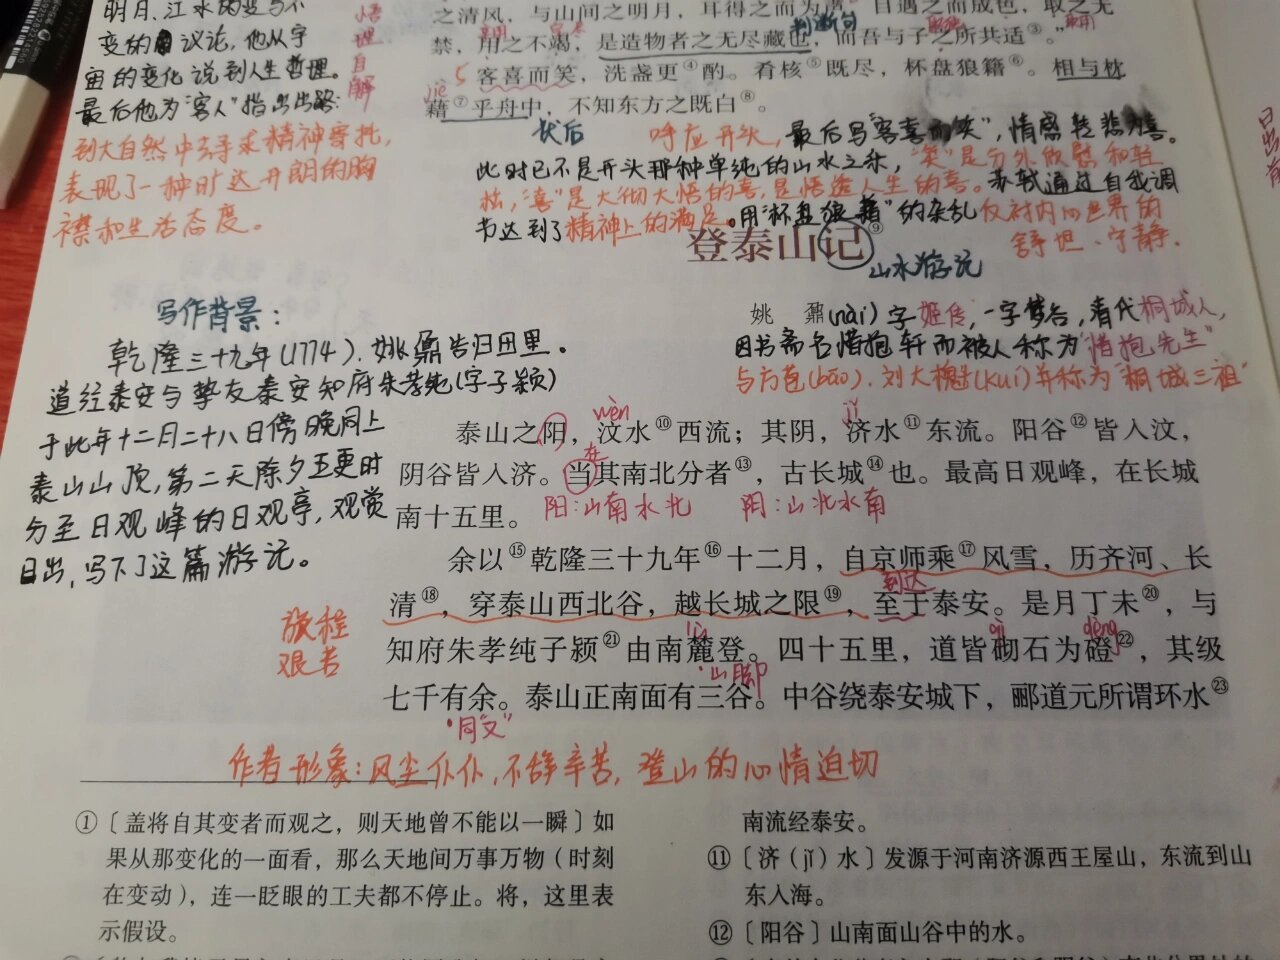 明月、江水的变与不
变的议论，他从宇
宙的变化说到人生哲理。
最后他为“客人”指出出路：
到大自然中去寻求精神寄托，
表现了一种旷达开朗的胸
襟和生活态度。
悟
理
自
解
之清风，与山间之明月，耳得之而为声，目遇之而成色，取之无
判断句
禁，用之不竭，是造物者之无尽藏也，而吾与子之所共适③。”
5 客喜而笑，洗盏更④酌。肴核⑤既尽，杯盘狼籍⑥。相与枕
jiè
藉⑦乎舟中，不知东方之既白⑧。
呼应开头，最后写“客喜而笑”，情感转悲为喜。
此时已不是开头那种单纯的山水之乐，“笑”是分外欣慰和轻
松，“喜”是大彻大悟的喜，是悟透人生的喜。苏轼通过自我调
节达到了精神上的满足。用“杯盘狼藉”的杂乱反衬内心世界的
舒坦、宁静。
登泰山记⑨
山水游记
写作背景：
乾隆三十九年(1774)，姚鼐告归田里。
道经泰安与挚友泰安知府朱孝纯(字子颍)
于此年十二月二十八日傍晚同上
泰山山顶，第二天除夕五更时
分至日观峰的日观亭，观赏
日出，写下了这篇游记。
姚 鼐(nài)字姬传，一字梦谷，清代桐城人，
因书斋名惜抱轩而被人称为“惜抱先生”
与方苞(bāo)、刘大櫆(kuí)并称为“桐城三祖”
wèn jǐ
泰山之阳，汶水⑩西流；其阴，济水⑪东流。阳谷⑫皆入汶，
在
阴谷皆入济。当其南北分者⑬，古长城⑭也。最高日观峰，在长城
南十五里。 阳：山南水北 阴：山北水南
余以⑮乾隆三十九年⑯十二月，自京师乘⑰风雪，历齐河、长
到达
清⑱，穿泰山西北谷，越长城之限⑲，至于泰安。是月丁未⑳，与
lù qì dèng
知府朱孝纯子颍㉑由南麓登。四十五里，道皆砌石为磴㉒，其级
山脚
七千有余。泰山正南面有三谷。中谷绕泰安城下，郦道元所谓环水㉓
同“又”
旅程
艰苦
作者形象：风尘仆仆，不辞辛苦，登山的心情迫切
①〔盖将自其变者而观之，则天地曾不能以一瞬〕如
果从那变化的一面看，那么天地间万事万物（时刻
在变动），连一眨眼的工夫都不停止。将，这里表
示假设。
南流经泰安。
⑪〔济（jǐ）水〕发源于河南济源西王屋山，东流到山
东入海。
⑫〔阳谷〕山南面山谷中的水。
日出前